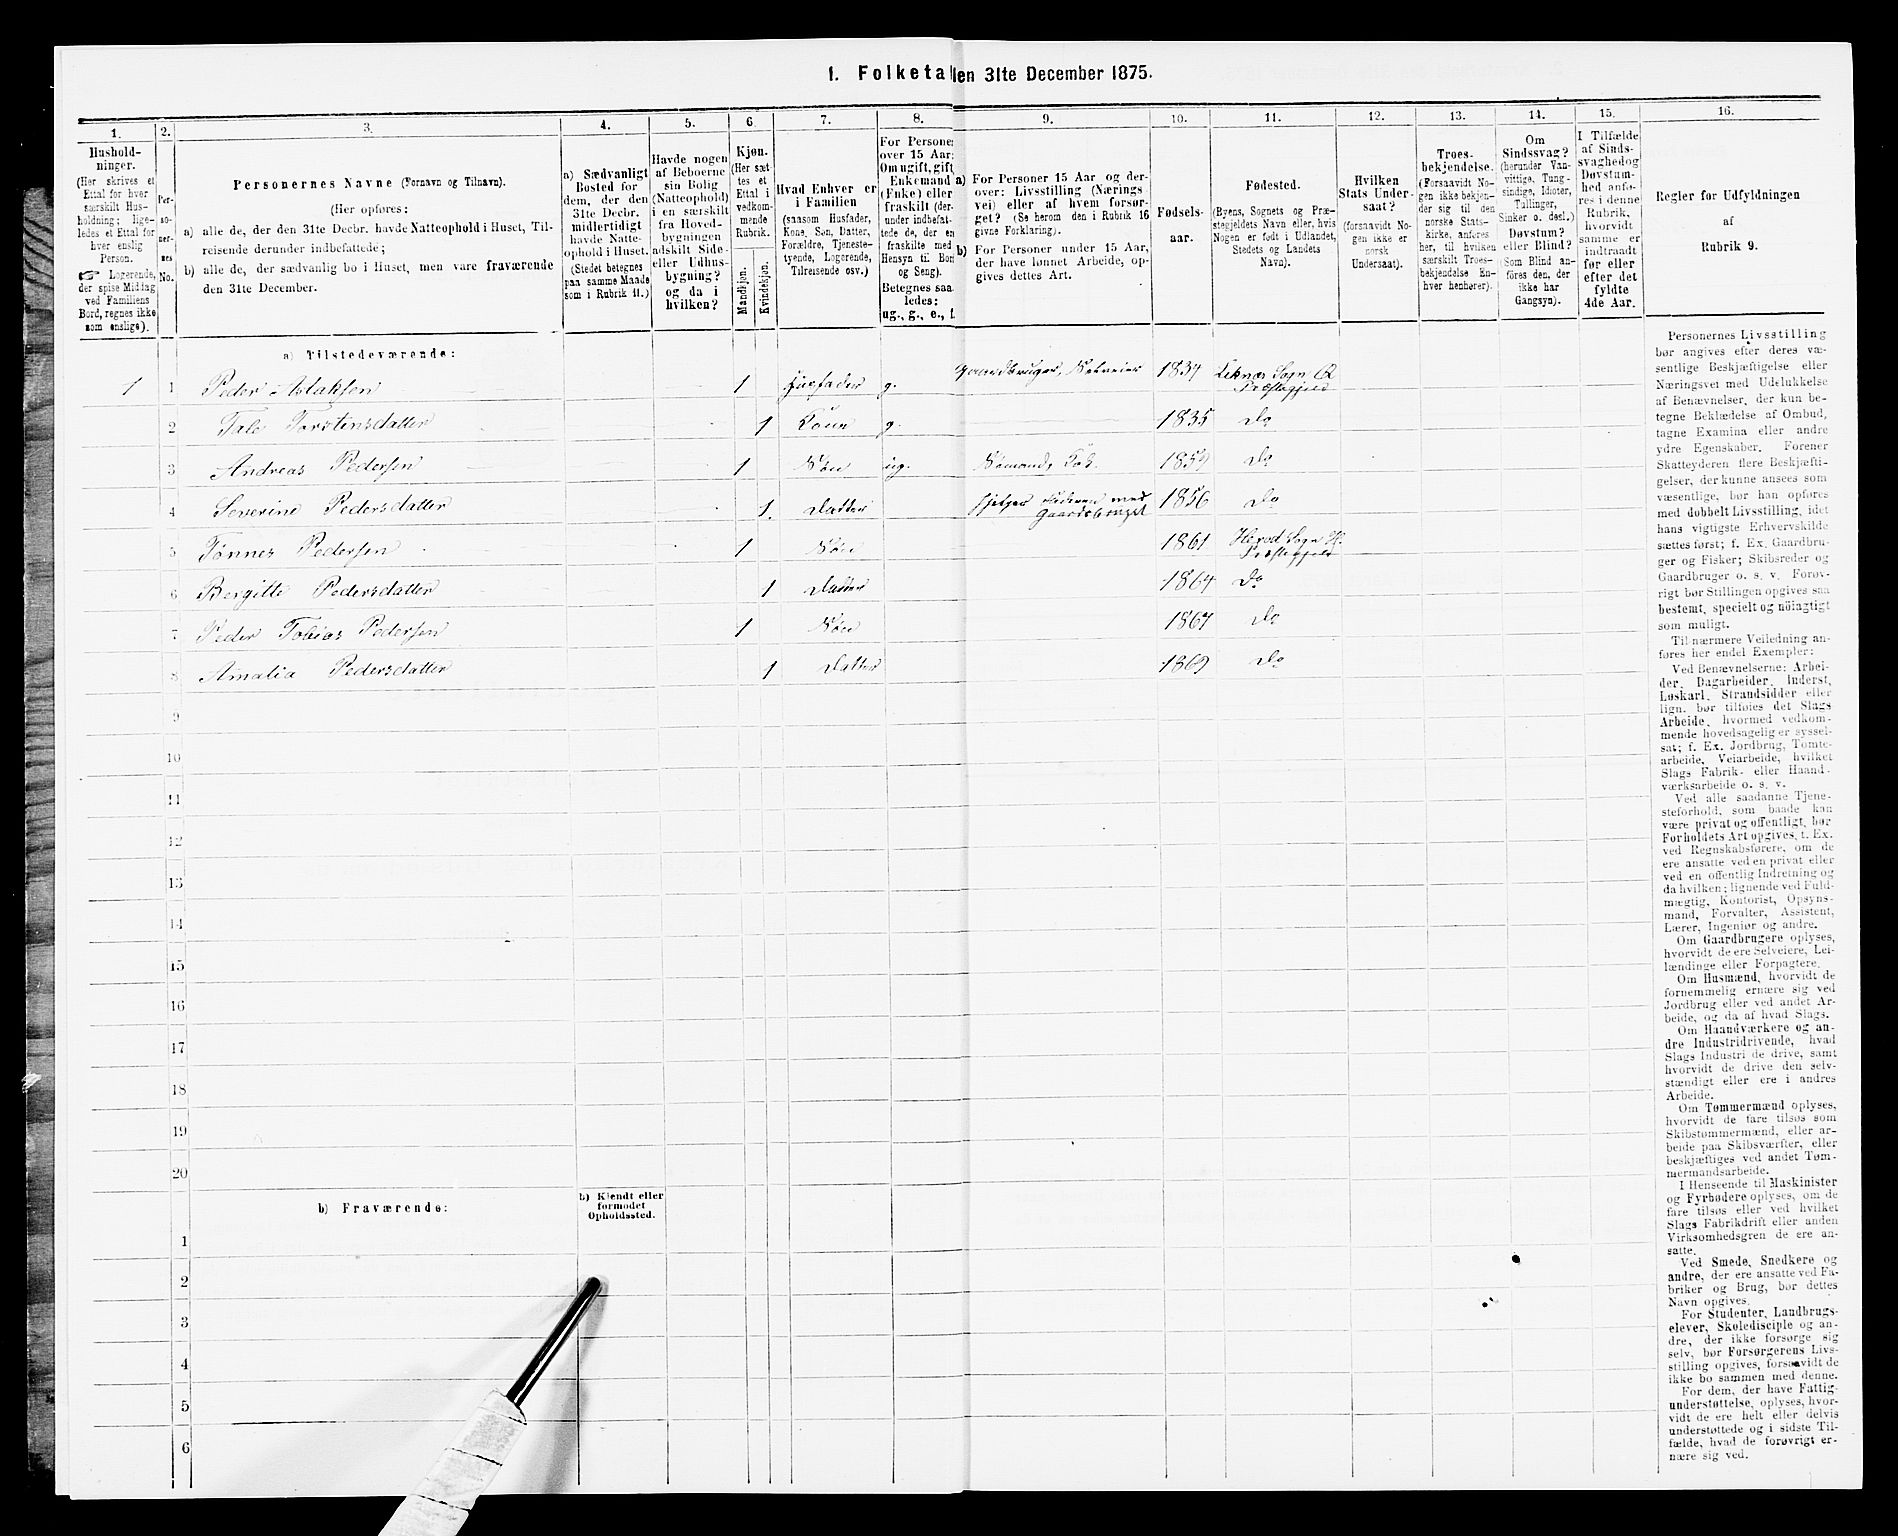 1. Folketal den 31te December 1875.
1.
2.
3.
4.
5.
6.
7.
8.
9.
10.
11.
12.
13.
14.
15.
16.
Hushold-
ninger.
(Her skrives et
Ettal for hver
særskilt Hus-
holdning; lige-
ledes et Ettal for
hver enslig
Person.
☞ Logerende,
der spise Middag
ved Familiens
Bord, regnes ikke
som enslige).
Per-
so-
ner-
nes
No.
Personernes Navne (Fornavn og Tilnavn).
(Her opføres:
a) alle de, der den 31te Decbr. havde Natteophold i Huset, Til-
reisende derunder indbefattede;
b) alle de, der sædvanlig bo i Huset, men vare fraværende
den 31te December.
a) Sædvanligt
Bosted for
dem, der den
31te Decbr.
midlertidigt
havde Natte-
ophold i Huset.
(Stedet betegnes
paa samme Maade
som i Rubrik 11.)
Havde nogen
af Beboerne
sin Bolig
(Natteophold)
i en særskilt
fra Hoved-
bygningen
adskilt Side-
eller Udhus-
bygning?
og da i
hvilken?
Kjøn.
(Her sæt-
tes et
Ettal i
vedkom-
mende
Rubrik.
Mandkjøn.
Kvindekjøn.
Hvad Enhver er
i Familien
(saasom Husfader,
Kone, Søn, Datter,
Forældre, Tjeneste-
tyende, Logerende,
Tilreisende osv.)
For Personer
over 15 Aar:
Om ugift, gift,
Enkemand
(Enke) eller
fraskilt (der-
under indbefat-
tede de, der ere
fraskilte med
Hensyn til Bord
og Seng).
Betegnes saa-
ledes:
ug., g., e., f.
a) For Personer 15 Aar og der-
over: Livsstilling (Nærings-
vei) eller af hvem forsør-
get? (Se herom den i Rubrik 16
givne Forklaring).
b) For Personer under 15 Aar,
der have lønnet Arbeide, op-
gives dettes Art.
Fødsels-
aar.
Fødested.
(Byens, Sognets og Præ-
stegjeldets Navn eller, hvis
Nogen er født i Udlandet,
Stedets og Landets
Navn).
Hvilken
Stats Under-
saat?
(forsaavidt No-
gen ikke er
norsk
Undersaat).
Troes-
bekjendelse.
(Forsaavidt No-
gen ikke bekjen-
der sig til den
norske Stats-
kirke, anføres
her, til hvilken
særskilt Troes-
bekjendelse En-
hver henhører).
Om
Sindssvag?
(herunder Van-
vittige, Tung-
sindige, Idioter,
Tullinger,
Sinker o. desl.)
Døvstum?
eller Blind?
(Som Blind an-
føres den, der
ikke har
Gangsyn).
I Tilfælde
af Sinds-
svaghed og
Døvstum-
hed anfø-
res i denne
Rubrik,
hvorvidt
samme er
indtraadt
før eller
efter det
fyldte
4de Aar.
Regler for Udfyldningen
af
Rubrik 9.
a) Tilstedeværende:
1 1 Peder Aslaksen 1 Husfader g. Gaardbruger, Selveier 1834 Leknæs Sogn
Præstegjeld
2 Tale Torstensdatter 1 Kone g. 1835 Do
3 Andreas Pedersen 1 Søn ug. Sømand, 1859 Do
4 Severine Pedersdatter 1. Datter Hjelper Faderen med
Gaardsbruget 1856 Do
5 Tønnes Pedersen 1 Søn 1861 Herod Sogn H.
Præstegjeld
6 Bergitte Pedersdatter 1 Datter 1864 Do
7 Peder Tobias Pedersen 1 Søn 1867 Do
8 Amalia Pedersdatter 1 Datter 1869 Do
9
10
11
12
13
14
15
16
17
18
19
20
b) Fraværende:
b) Kjendt eller
formodet
Opholdssted.
1
2
3
4
5
6
Personernes Livsstilling
bør angives efter deres væ-
sentlige Beskjæftigelse eller
Næringsvei med Udelukkelse
af Benævnelser, der kun be-
tegne Beklædelse af Ombud,
tagne Examina eller andre
ydre Egenskaber. Forener
Skatteyderen flere Beskjæfti-
gelser, der kunne ansees som
væsentlige, bør han opføres
med dobbelt Livsstilling, idet
hans vigtigste Erhvervskilde
sættes først; f. Ex. Gaardbru-
ger og Fisker; Skibsreder og
Gaardbruger o. s. v. Forøv-
rigt bør Stillingen opgives saa
bestemt, specielt og nöiagtigt
som muligt.
Til nærmere Veiledning an-
føres her endel Exempler:
Ved Benævnelserne: Arbei-
der, Dagarbeider, Inderst,
Løskarl, Strandsidder eller
lign. bør tilføies det Slags
Arbeide, hvormed vedkom-
mende hovedsagelig er syssel-
sat; f. Ex. Jordbrug, Tømte-
arbeide, Veiarbeide, hvilket
Slags Fabrik- eller Haand-
værksarbeide o. s. v.
Ved alle saadanne Tjene-
steforhold, som baade kan
være privat og offentligt, bør
Forholdets Art opgives, t. Ex.
ved Regnskabsførere, om de
ere ansatte ved en privat eller
ved en offentlig Indretning og
da hvilken; lignende ved Fuld-
mægtig, Kontorist, Opsyns-
mand, Forvalter, Assistent,
Lærer, Ingeniør og andre.
Om Gaardbrugere oplyses,
hvorvidt de ere Selveiere, Lei-
lændinge eller Forpagtere.
Om Husmænd, hvorvidt de
fornemmelig ernære sig ved
Jordbrug eller ved andet Ar-
beide, og da af hvad Slags.
Om Haandværkere og an-
dre Industridrivende, hvad
Slags Industri de drive, samt
hvorvidt de drive den selv-
stændigt eller ere i andres
Arbeide.
Om Tømmermænd oplyses,
hvorvidt de fare tilsøs som
Skibstømmermænd, eller ar-
beide paa Skibsværfter, eller
beskjæftiges ved andet Tøm-
mermandsarbeide.
I Henseende til Maskinister
og Fyrbødere oplyses, om de
fare tilsøs eller ved hvilket
Slags Fabrikdrift eller anden
Virksomhedsgren de ere an-
satte.
Ved Smede, Snedkere og
andre, der ere ansatte ved Fa-
briker og Brug, bør dettes
Navn opgives.
For Studenter, Landbrugs-
elever, Skoledisciple og an-
dre, der ikke forsørge sig
selv, bør Forsørgerens Livs-
stilling opgives, forsaavidt de
ikke bo sammen med denne.
For dem, der have Fattig-
understøttelse, oplyses, hvor-
vidt de ere helt eller delvis
understøttede og i sidste Til-
fælde, hvad de forøvrigt er-
nære sig ved.